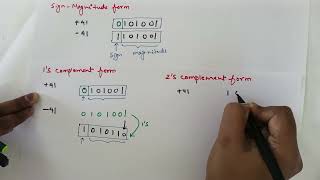 Sign-Magnitude form
+41 0101001
-41 1101001
Sign magnitude
1's complement form
+41 0101001
-41 0101001
1's
1010110
2's complement form
+41 1